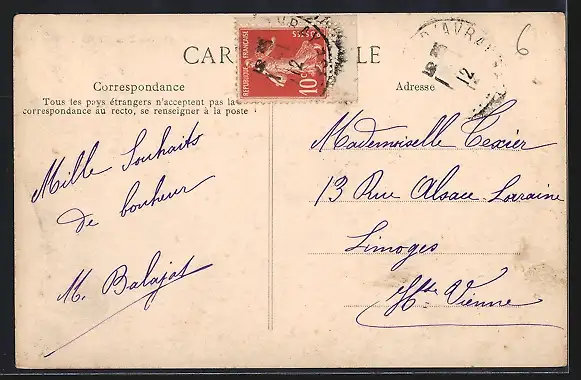 CAR LE
REPUBLIQUE FRANÇAISE
POSTES
10c
D'AVRAY
12
6
Correspondance
Tous les pays étrangers n'acceptent pas la
correspondance au recto, se renseigner à la poste
Mille Souhaits
de bonheur
M. Balajat
Adresse
Mademoiselle Texier
13 Rue Alsace-Lorraine
Limoges
Hte Vienne